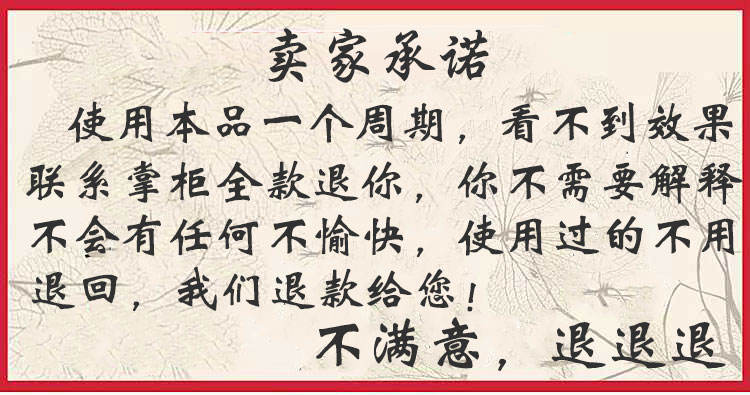 卖家承诺
使用本品一个周期，看不到效果
联系掌柜全款退你，你不需要解释
不会有任何不愉快，使用过的不用
退回，我们退款给您！
不满意，退退退